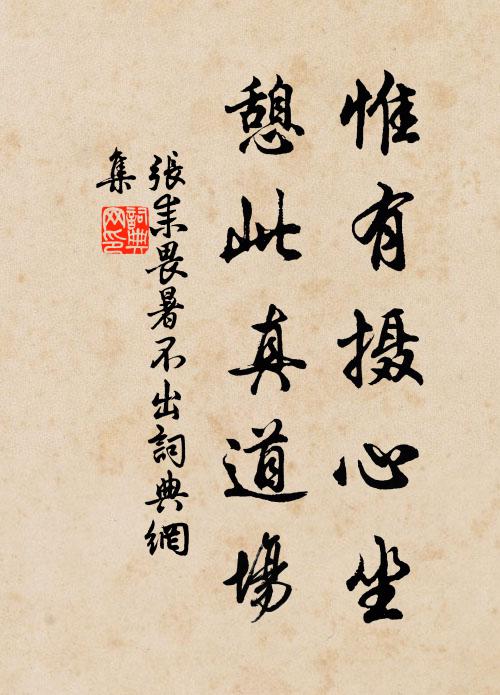 惟有摄心坐
憩此真道場
張耒畏暑不出詞典網
集
詞典
网印